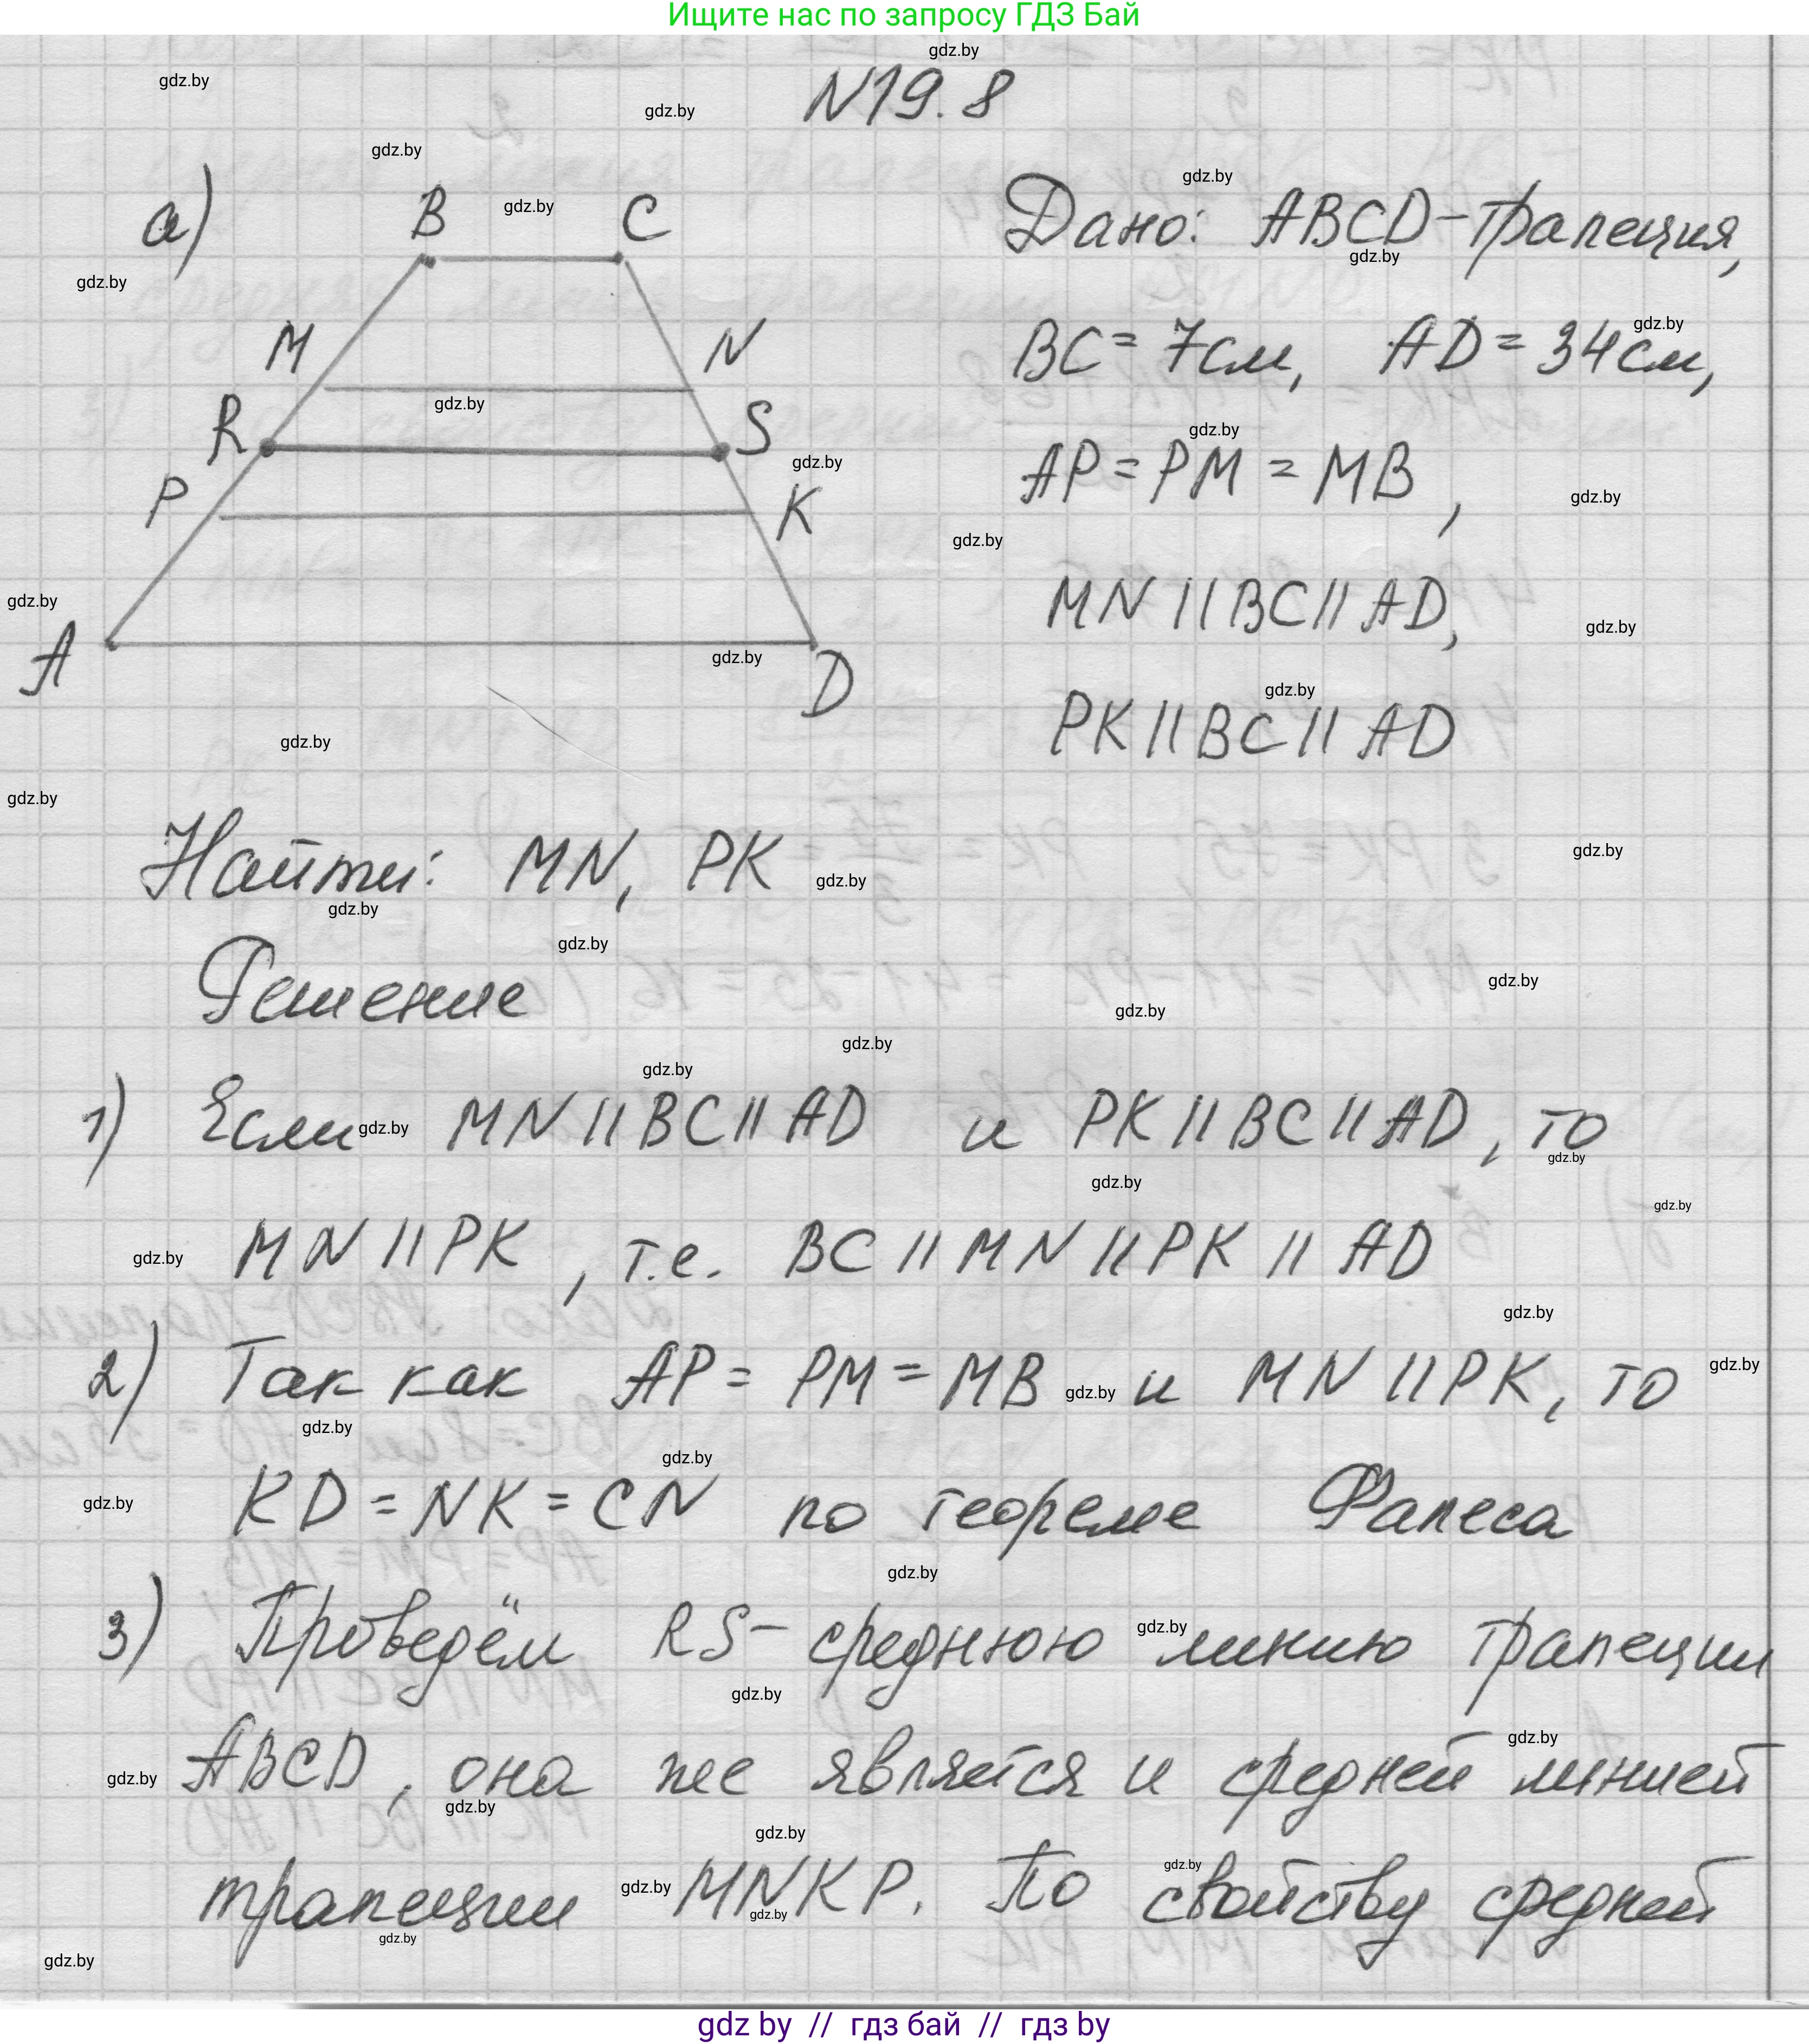 Ищите нас по запросу ГДЗ Бай
N19.8
а)
B
C
M
N
R
S
P
K
A
D
Дано: ABCD-трапеция,
BC = 7см, AD = 34см,
AP = PM = MB,
MN || BC || AD,
PK || BC || AD
Найти: MN, PK
Решение
1) Если MN || BC || AD и PK || BC || AD, то
MN || PK, т.е. BC || MN || PK || AD
2) Так как AP = PM = MB и MN || PK, то
KD = NK = CN по теореме Фалеса
3) Проведём RS- среднюю линию трапеции
ABCD, она же является и средней линией
трапеции MNKP. По свойству средней
gdz by // гдз бай // гдз by